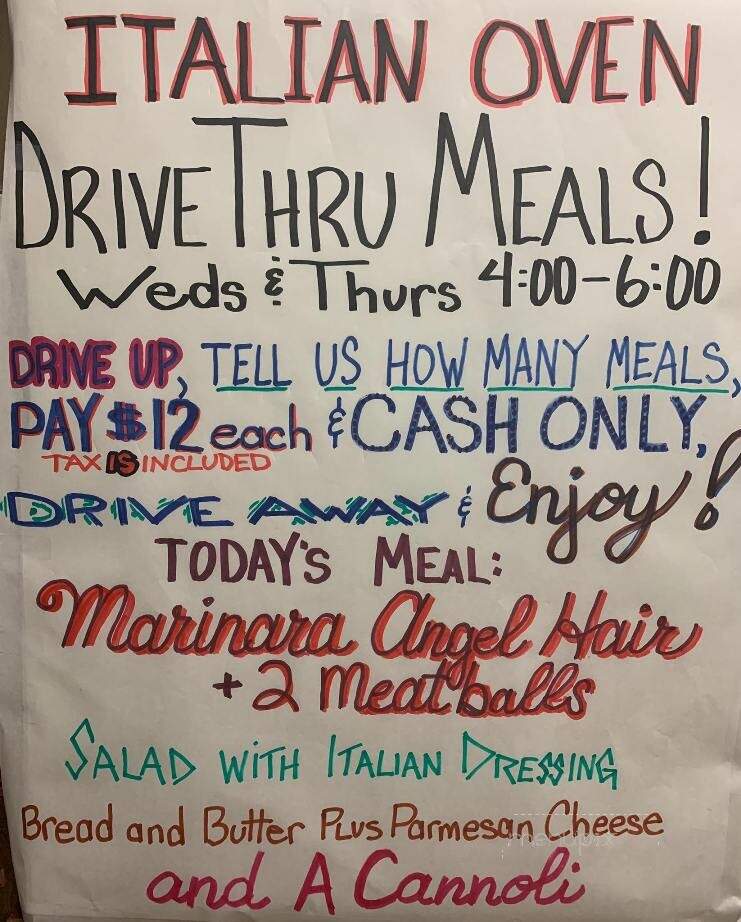 ITALIAN OVEN
DRIVE THRU MEALS!
Weds & Thurs 4:00-6:00
DRIVE UP, TELL US HOW MANY MEALS,
PAY $12 each & CASH ONLY,
TAX IS INCLUDED
DRIVE AWAY & Enjoy!
TODAY'S MEAL:
Marinara Angel Hair
+ 2 Meatballs
SALAD WITH ITALIAN DRESSING
Bread and Butter PLUS Parmesan Cheese
and A Cannoli